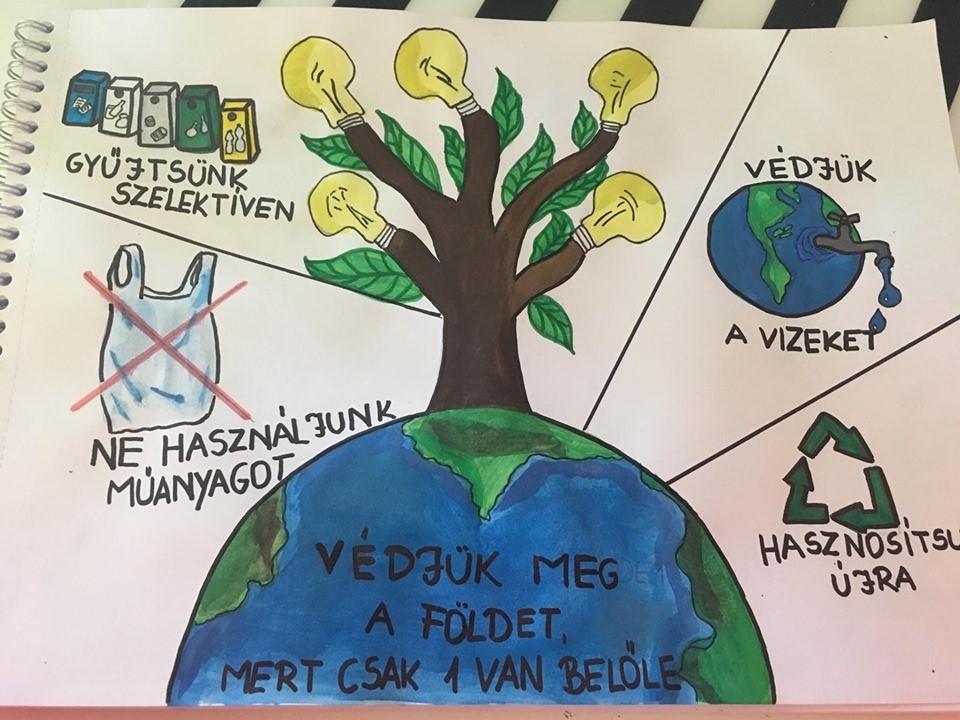 GYŰJTSÜNK
SZELEKTÍVEN
VÉDJÜK
A VIZEKET
NE HASZNÁLJUNK
MŰANYAGOT
HASZNOSÍTSU
ÚJRA
VÉDJÜK MEG
A FÖLDET,
MERT CSAK 1 VAN BELŐLE